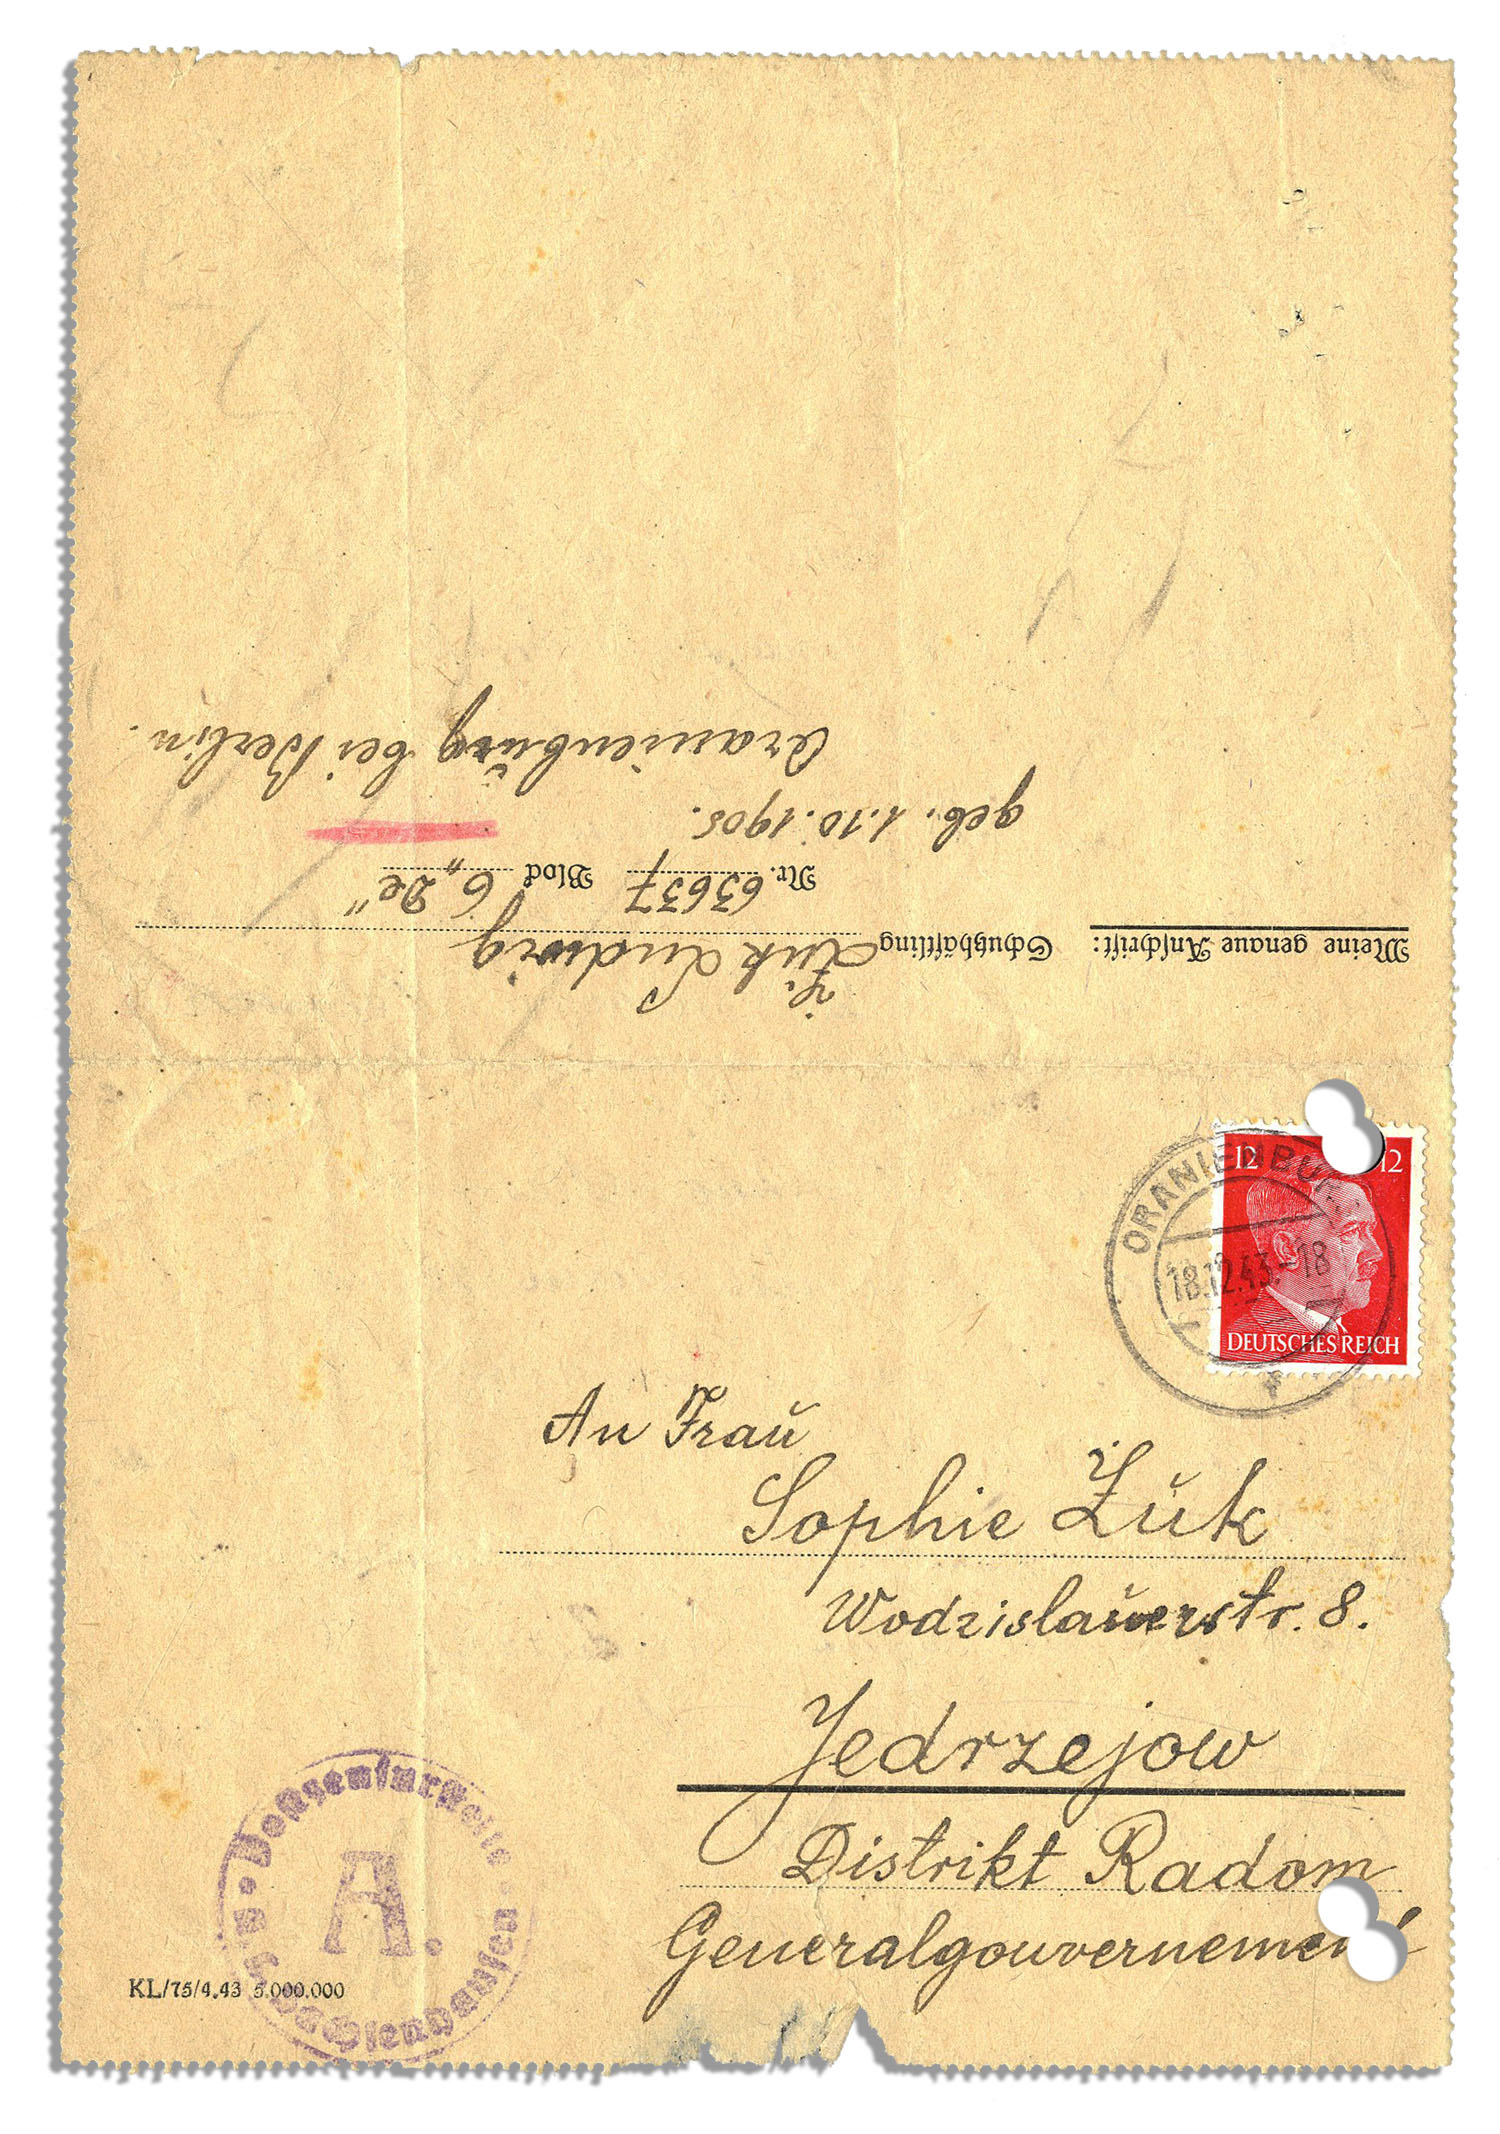 Meine genaue Anschrift:
Schutzhäftling Żuk Ludwig
Nr. 63637 Block 6 „De"
geb. 1.10.1905.
Oranienbŭrg bei Berlin.
12 12
ORANIENBU
18.12.43.-18
DEUTSCHES REICH
An Fraŭ
Sophie Żŭk
Wodzislaŭerstr. 8.
Jedrzejow
Distrikt Radom
Generalgouvernement
Postzensurstelle
A.
K.L. Sachsenhausen
KL/75/4.43 5.000.000